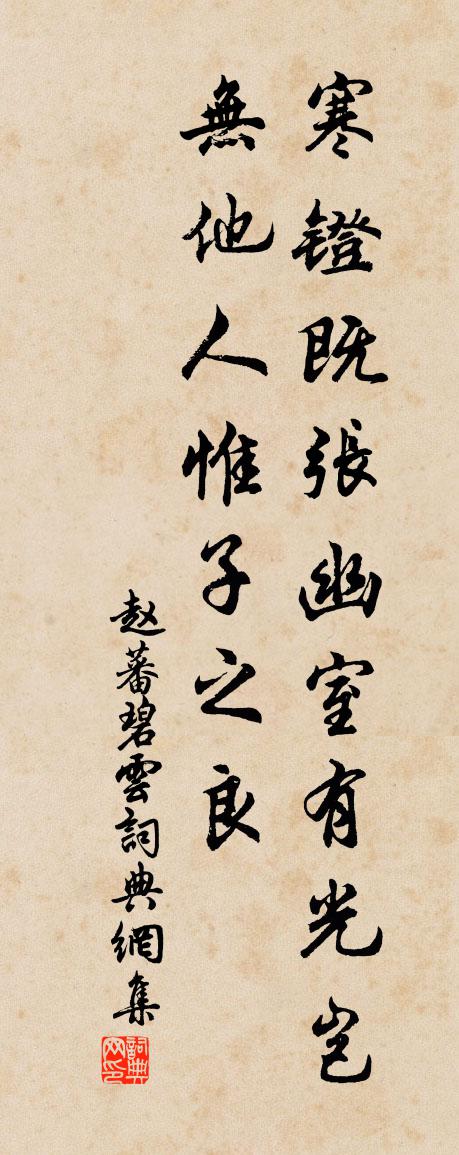 寒鐙既張幽室有光岂
無他人惟子之良
赵蕃碧雲詞典網集
詞典网印